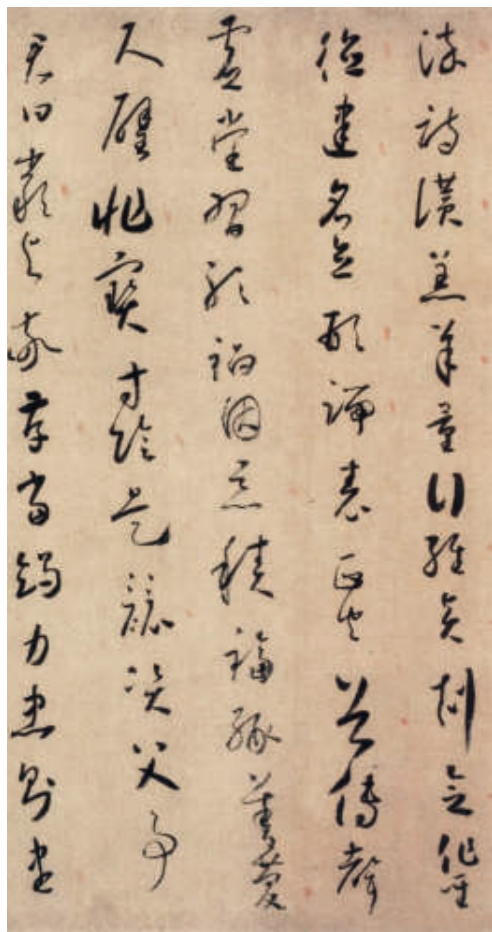 染詩讚羔羊景行維賢剋念作聖
德建名立形端表正空谷傳聲
虛堂習聽禍因惡積福緣善慶
尺璧非寶寸陰是競資父事
君曰嚴與敬孝當竭力忠則盡